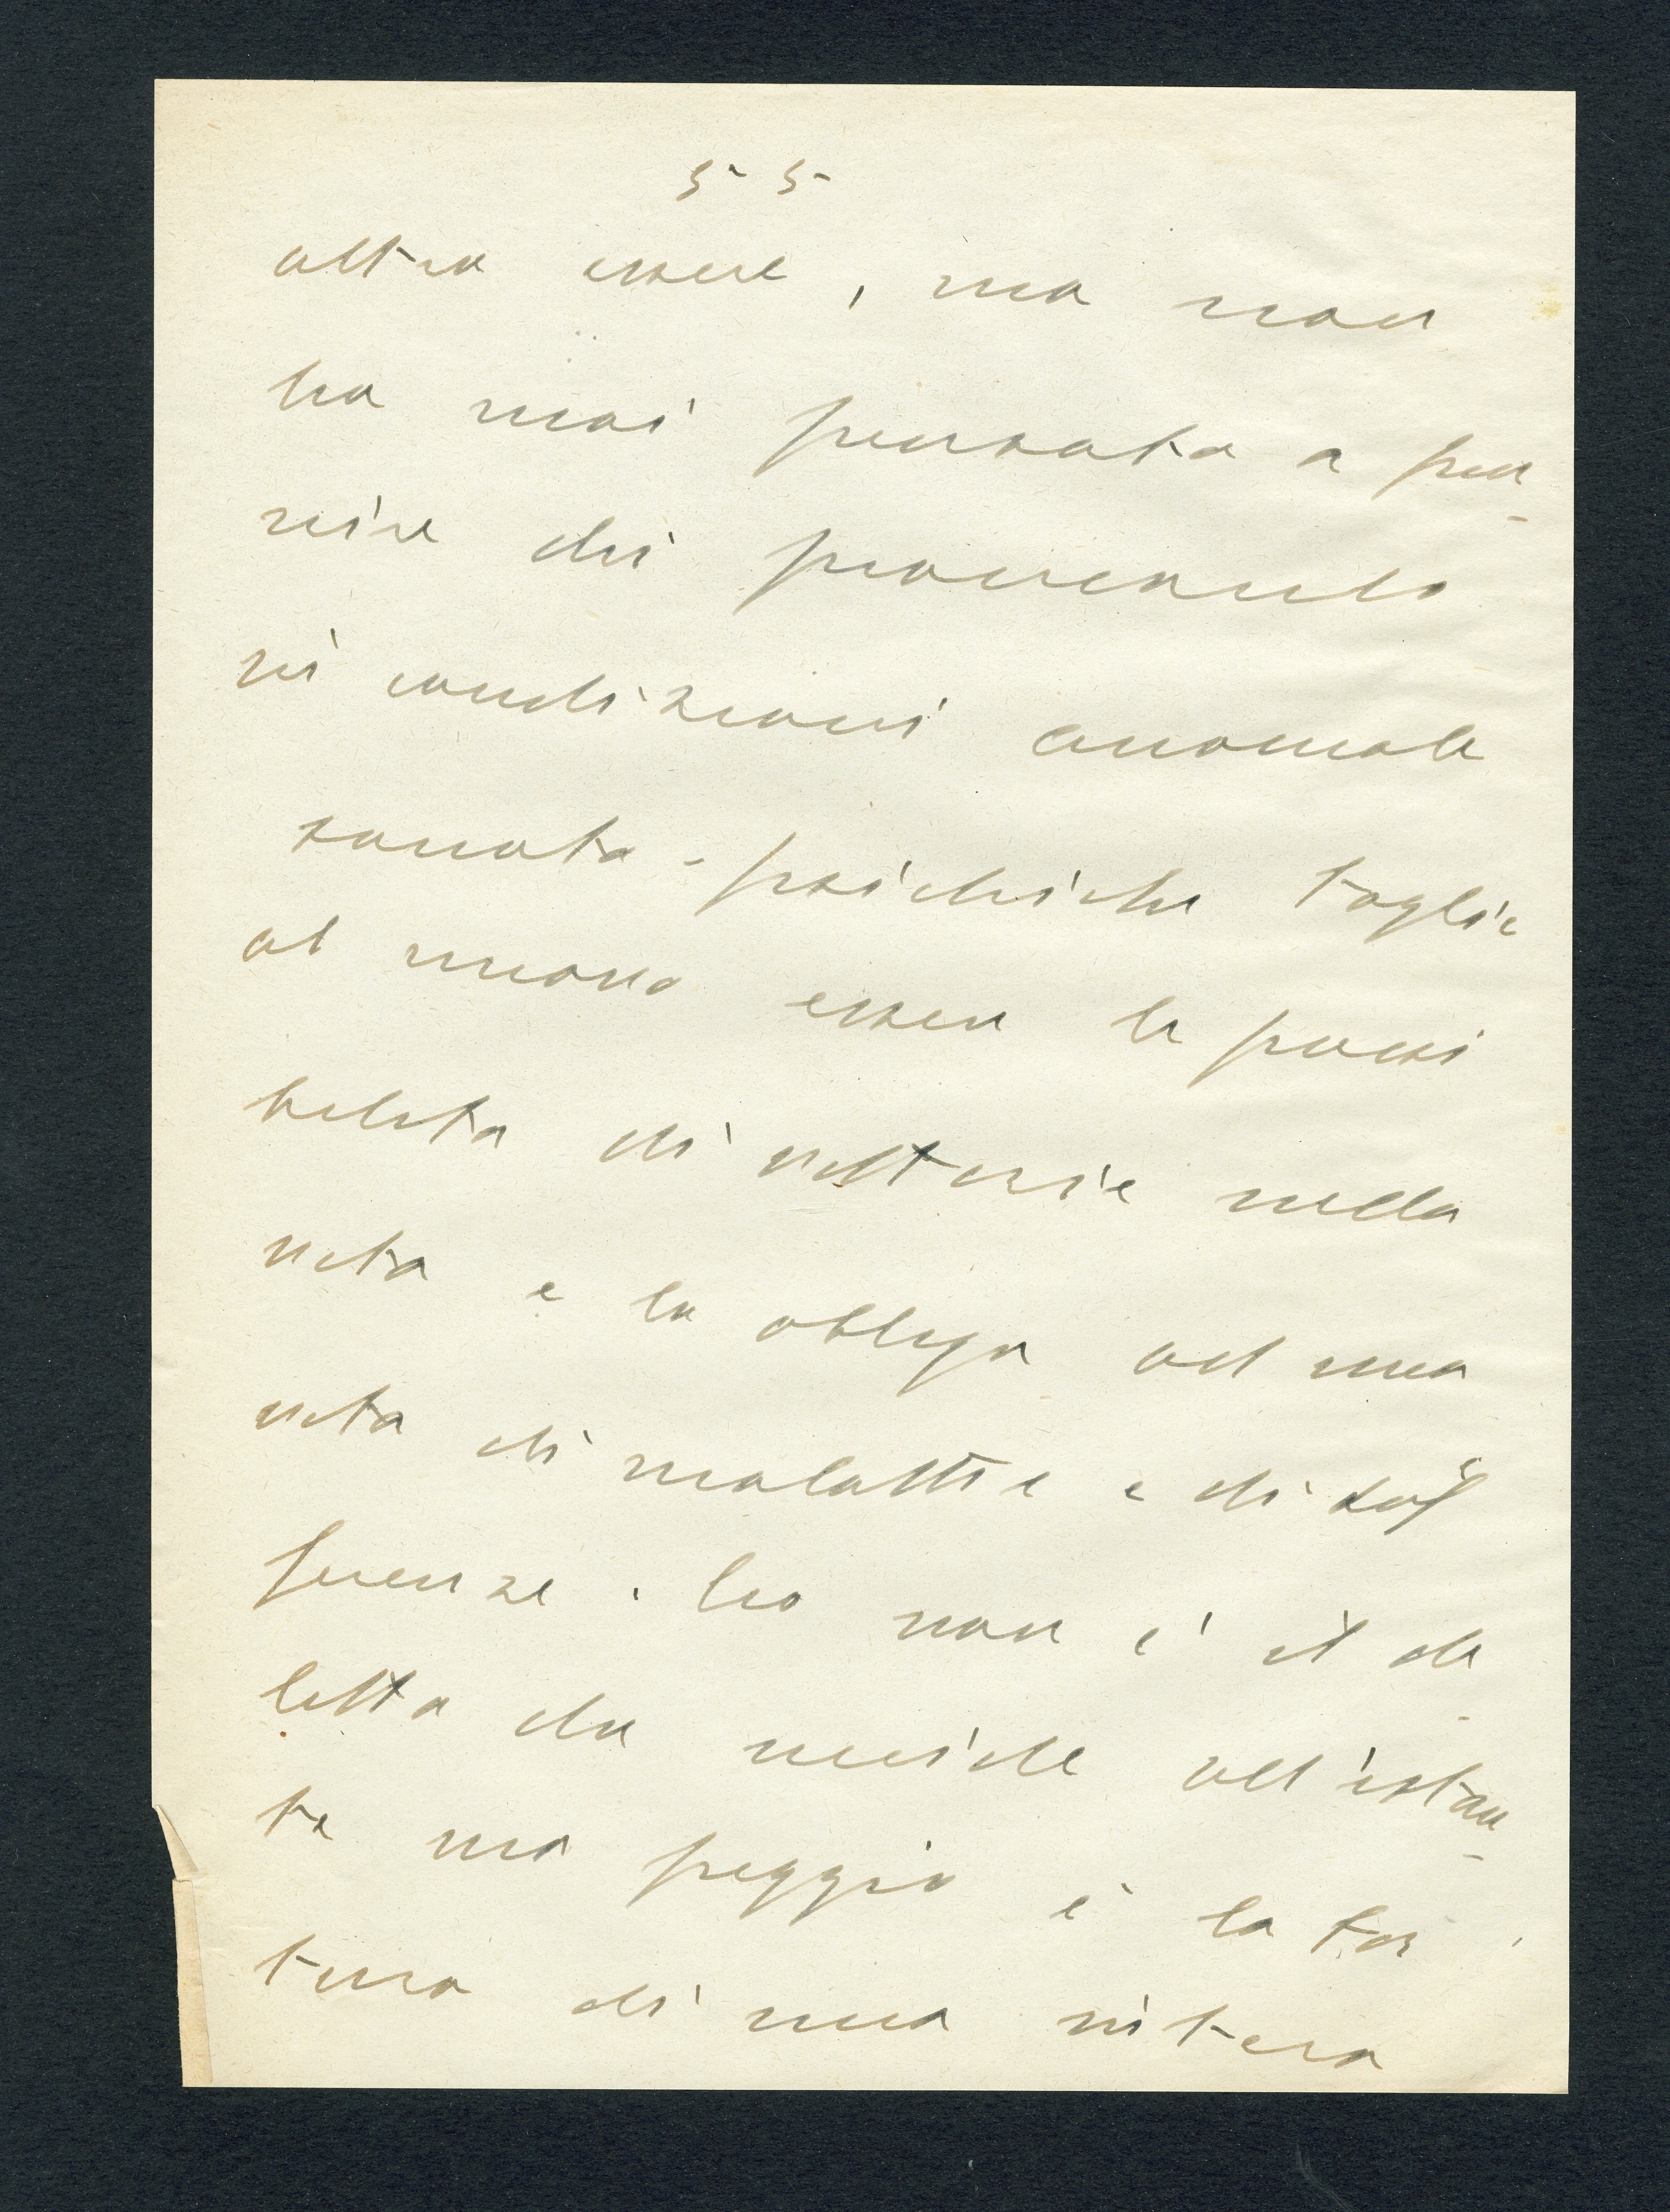 55
altro essere, ma non
ha mai pensato a pu-
nire chi procreando
in condizioni anomale
somato-psichiche toglie
al nuovo essere le possi
bilità di vittorie nella
vita e lo obbliga ad una
vita di malattie e di sof
ferenze. Ciò non è il de-
litto che uccide all'istan-
te ma peggio è la tor
tura di una intera